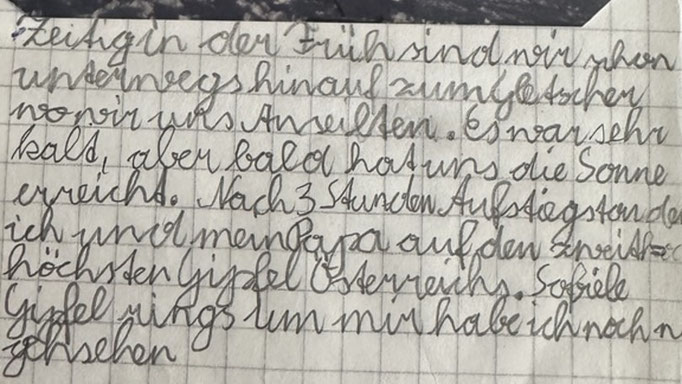 Zeitig in der Früh sind wir schon
unterwegs hinauf zum Gletscher
wo wir uns Anseilten. Es war sehr
kalt, aber bald hat uns die Sonne
erreicht. Nach 3 Stunden Aufstieg standen
ich und mein Papa auf den zweit
höchsten Gipfel Österreichs. Sofiele
Gipfel rings um mir habe ich noch n
gehsehen